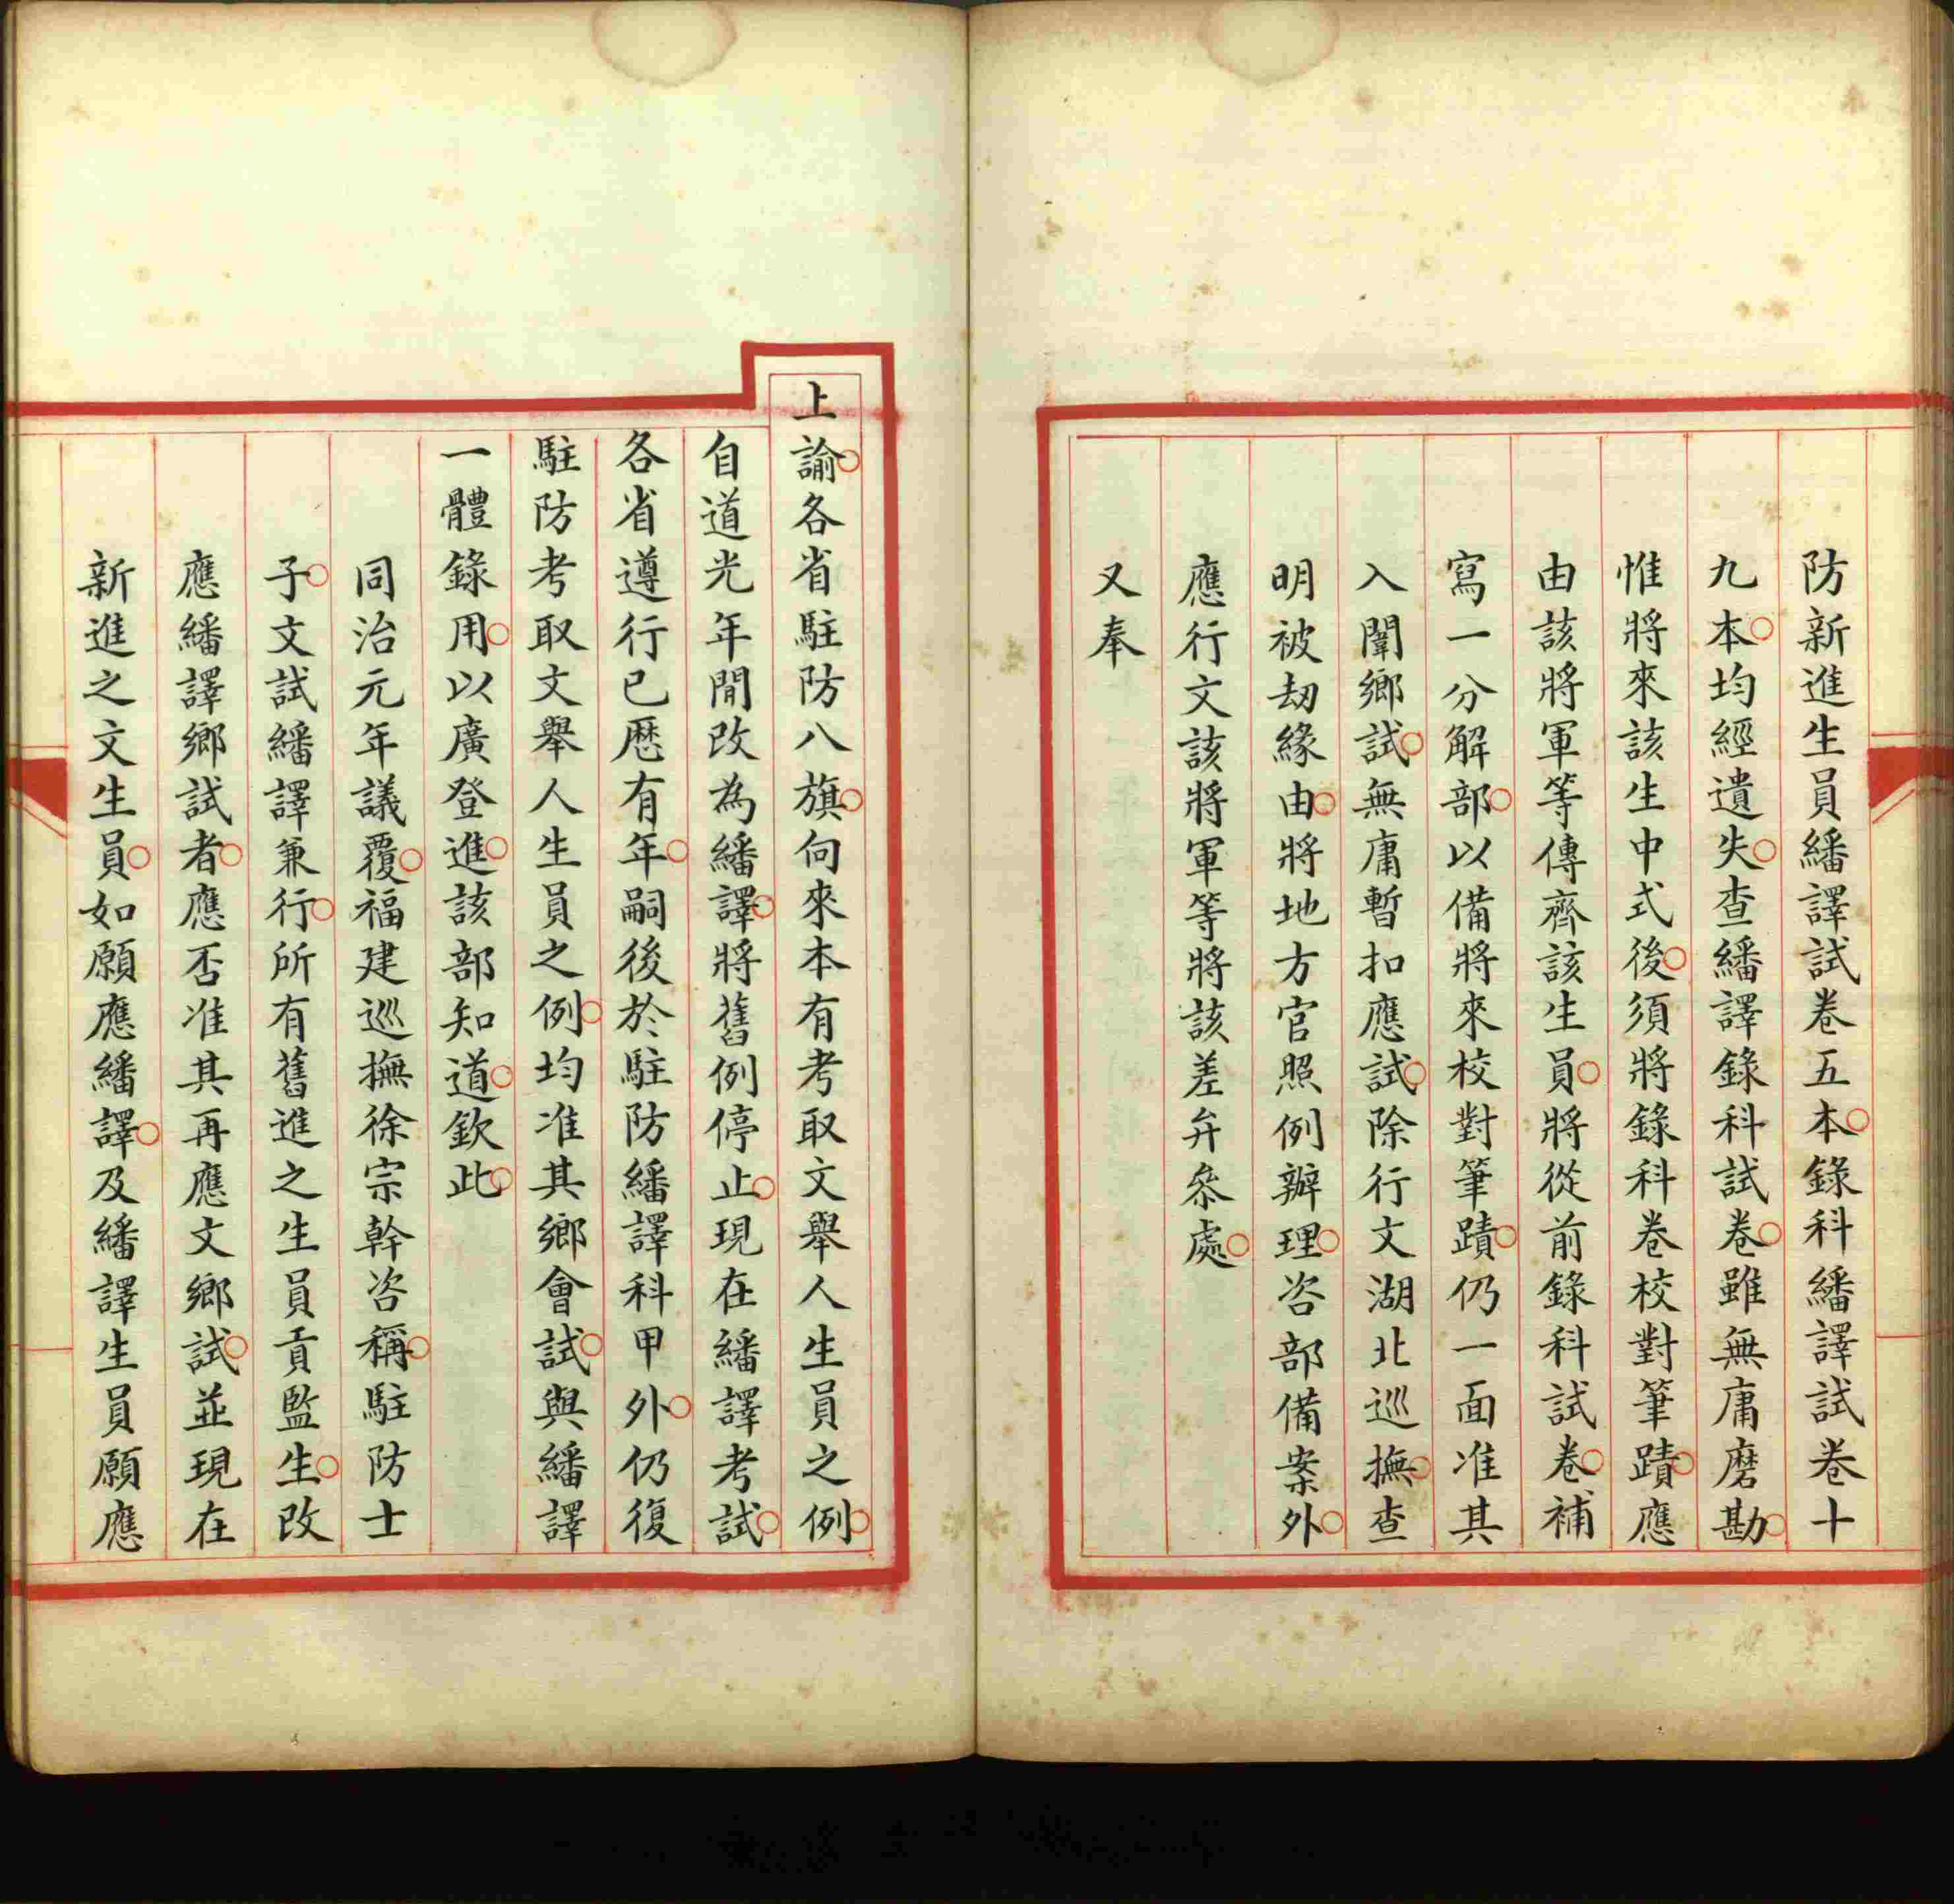 防新進生員繙譯試卷五本○錄科繙譯試卷十
九本○均經遺失○查繙譯錄科試卷○雖無庸磨勘○
惟將來該生中式後○須將錄科卷校對筆蹟○應
由該將軍等傳齊該生員○將從前錄科試卷○補
寫一分解部○以備將來校對筆蹟○仍一面准其
入闈鄉試○無庸暫扣應試○除行文湖北巡撫○查
明被刧緣由○將地方官照例辦理○咨部備案外○
應行文該將軍等將該差弁叅處○
又奉
上諭○各省駐防八旗○向來本有考取文舉人生員之例○
自道光年間改為繙譯○將舊例停止○現在繙譯考試○
各省遵行已歷有年○嗣後於駐防繙譯科甲外○仍復
駐防考取文舉人生員之例○均准其鄉會試○與繙譯
一體錄用○以廣登進○該部知道○欽此○
同治元年議覆○福建巡撫徐宗幹咨稱○駐防士
子○文試繙譯兼行○所有舊進之生員貢監生○改
應繙譯鄉試者○應否准其再應文鄉試○並現在
新進之文生員○如願應繙譯○及繙譯生員願應